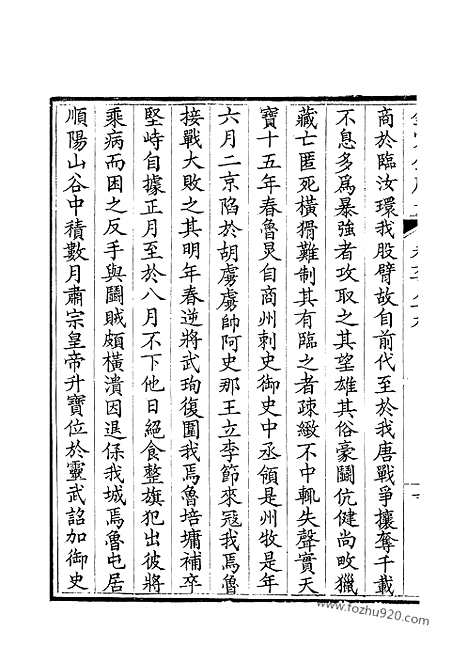 商於臨汝環我股臂故自前代至於我唐戰爭攘奪千載
不息多爲暴強者攻取之其望雄其俗豪鬭伉健尚畋獵
藏亡匿死橫猾難制其有臨之者疎緻不中輒失聲實天
寶十五年春魯炅自商州刺史御史中丞領是州牧是年
六月二京陷於胡虜虜帥阿史那王立李節來冦我焉魯
接戰大敗之其明年春逆將武珣復圍我焉魯培墉補卒
堅峙自據正月至於八月不下他日絕食整旗犯出彼將
乘病而困之反手與鬭賊頗橫潰因退保我城焉魯屯居
順陽山谷中積數月肅宗皇帝升寶位於靈武詔加御史
www.fozhu920.com